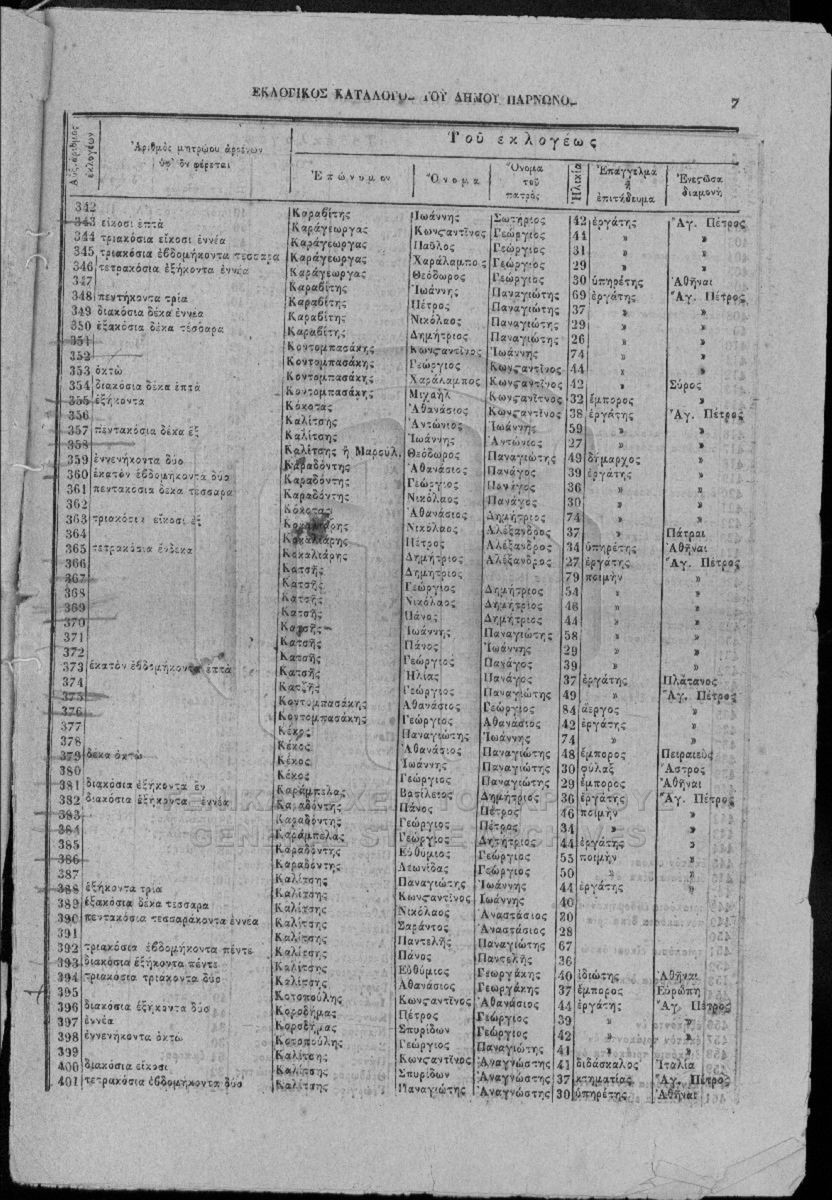 ΕΚΛΟΓΙΚΟΣ ΚΑΤΑΛΟΓΟΣ ΤΟΥ ΔΗΜΟΥ ΠΑΡΝΩΝΟΣ 7
Αὔξ. ἀριθμὸς ἐκλογέων
Ἀριθμὸς μητρῴου ἀῤῥένων ὑφ' ὃν φέρεται
Τοῦ ἐκλογέως
Ἐπώνυμον Ὄνομα Ὄνομα τοῦ πατρός Ἡλικία Ἐπάγγελμα ἢ ἐπιτήδευμα Ἐνεστῶσα διαμονή
342 Καραβίτης Ἰωάννης Σωτήριος 42 ἐργάτης Ἅγ. Πέτρος
343 εἴκοσι ἑπτά Καράγεωργας Κωνσταντῖνος Γεώργιος 44 » »
344 τριακόσια εἴκοσι ἐννέα Καράγεωργας Παῦλος Γεώργιος 31 » »
345 τριακόσια ἑβδομήκοντα τέσσαρα Καράγεωργας Χαράλαμπος Γεώργιος 29 » »
346 τετρακόσια ἑξήκοντα ἐννέα Καράγεωργας Θεόδωρος Γεώργιος 30 ὑπηρέτης Ἀθῆναι
347 Καραβίτης Ἰωάννης Παναγιώτης 69 ἐργάτης Ἅγ. Πέτρος
348 πεντήκοντα τρία Καραβίτης Πέτρος Παναγιώτης 37 » »
349 διακόσια δέκα ἐννέα Καραβίτης Νικόλαος Παναγιώτης 29 » »
350 ἑξακόσια δέκα τέσσαρα Καραβίτης Δημήτριος Παναγιώτης 26 » »
351 Κοντομπασάκης Κωνσταντῖνος Ἰωάννης 74 » »
352 Κοντομπασάκης Γεώργιος Κωνσταντῖνος 44 » »
353 ὀκτώ Κοντομπασάκης Χαράλαμπος Κωνσταντῖνος 42 » Σύρος
354 διακόσια δέκα ἑπτά Κοντομπασάκης Μιχαήλ Κωνσταντῖνος 32 ἔμπορος »
355 ἑξήκοντα Κόκοτας Ἀθανάσιος Κωνσταντῖνος 38 ἐργάτης Ἅγ. Πέτρος
356 Καλίτσης Ἀντώνιος Ἰωάννης 59 » »
357 πεντακόσια δέκα ἕξ Καλίτσης Ἰωάννης Ἀντώνιος 27 » »
358 Καλίτσης ἢ Μαρούλ. Θεόδωρος Παναγιώτης 49 δήμαρχος »
359 ἐννενήκοντα δύο Καραδόντης Ἀθανάσιος Πανάγος 39 ἐργάτης »
360 ἑκατὸν ἑβδομήκοντα δύο Καραδόντης Γεώργιος Πανάγος 36 » »
361 πεντακόσια δέκα τέσσαρα Καραδόντης Νικόλαος Πανάγος 30 » »
362 Κόκοτας Ἀθανάσιος Δημήτριος 74 » »
363 τριακόσια εἴκοσι ἕξ Κοκαλιάρης Νικόλαος Ἀλέξανδρος 37 » Πάτραι
364 Κοκαλιάρης Πέτρος Ἀλέξανδρος 34 ὑπηρέτης Ἀθῆναι
365 τετρακόσια ἕνδεκα Κοκαλιάρης Δημήτριος Ἀλέξανδρος 27 ἐργάτης Ἅγ. Πέτρος
366 Κατσῆς Δημήτριος 79 ποιμήν »
367 Κατσῆς Γεώργιος Δημήτριος 54 » »
368 Κατσῆς Νικόλαος Δημήτριος 46 » »
369 Κατσῆς Πάνος Δημήτριος 44 » »
370 Κατσῆς Ἰωάννης Παναγιώτης 58 » »
371 Κατσῆς Πάνος Ἰωάννης 29 » »
372 Κατσῆς Γεώργιος Πανάγος 39 » »
373 ἑκατὸν ἑβδομήκοντα ἑπτά Κατσῆς Ἠλίας Πανάγος 37 ἐργάτης Πλάτανος
374 Κατζῆς Γεώργιος Παναγιώτης 49 » Ἅγ. Πέτρος
375 Κοντομπασάκης Ἀθανάσιος Γεώργιος 84 ἄεργος »
376 Κοντομπασάκης Γεώργιος Ἀθανάσιος 42 ἐργάτης »
377 Κέκος Παναγιώτης Ἰωάννης 74 » »
378 Κέκος Ἀθανάσιος Παναγιώτης 48 ἔμπορος Πειραιεύς
379 δέκα ὀκτώ Κέκος Ἰωάννης Παναγιώτης 30 φύλαξ Ἄστρος
380 Κέκος Γεώργιος Παναγιώτης 29 ἔμπορος Ἀθῆναι
381 διακόσια ἑξήκοντα ἕν Καράμπελας Βασίλειος Δημήτριος 36 ἐργάτης Ἅγ. Πέτρος
382 διακόσια ἑξήκοντα ἐννέα Καραδόντης Πάνος Πέτρος 46 ποιμήν »
383 Καραδόντης Γεώργιος Πέτρος 34 » »
384 Καράμπελας Γεώργιος Δημήτριος 44 ἐργάτης »
385 Καραδόντης Εὐθύμιος Γεώργιος 55 ποιμήν »
386 Καραδόντης Λεωνίδας Γεώργιος 50 » »
387 Καλίτσης Παναγιώτης Ἰωάννης 44 ἐργάτης »
388 ἑξήκοντα τρία Καλίτσης Κωνσταντῖνος Ἰωάννης 40
389 ἑξακόσια δέκα τέσσαρα Καλίτσης Νικόλαος Ἀναστάσιος 30
390 πεντακόσια τεσσαράκοντα ἐννέα Καλίτσης Σαράντος Ἀναστάσιος 28
391 Καλίτσης Παντελῆς Παναγιώτης 67
392 τριακόσια ἑβδομήκοντα πέντε Καλίτσης Πάνος Παντελῆς 36
393 διακόσια ἑξήκοντα πέντε Καλίτσης Εὐθύμιος Γεωργάκης 40 ἰδιώτης Ἀθῆναι
394 τριακόσια τριάκοντα δύο Καλίτσης Ἀθανάσιος Γεωργάκης 37 ἔμπορος Εὐρώπη
395 Κοτοπούλης Κωνσταντῖνος Ἀθανάσιος 44 ἐργάτης Ἅγ. Πέτρος
396 διακόσια ἑξήκοντα δύο Κοροδήμας Πέτρος Γεώργιος 39 » »
397 ἐννέα Κοροδήμας Σπυρίδων Γεώργιος 42 » »
398 ἐννενήκοντα ὀκτώ Κοτοπούλης Γεώργιος Παναγιώτης 41 » »
399 Καλίτσης Κωνσταντῖνος Ἀναγνώστης 41 διδάσκαλος Ἰταλία
400 διακόσια εἴκοσι Καλίτσης Σπυρίδων Ἀναγνώστης 37 κτηματίας Ἅγ. Πέτρος
401 τετρακόσια ἑβδομήκοντα δύο Καλίτσης Παναγιώτης Ἀναγνώστης 30 ὑπηρέτης Ἀθῆναι
GENERAL STATE ARCHIVES